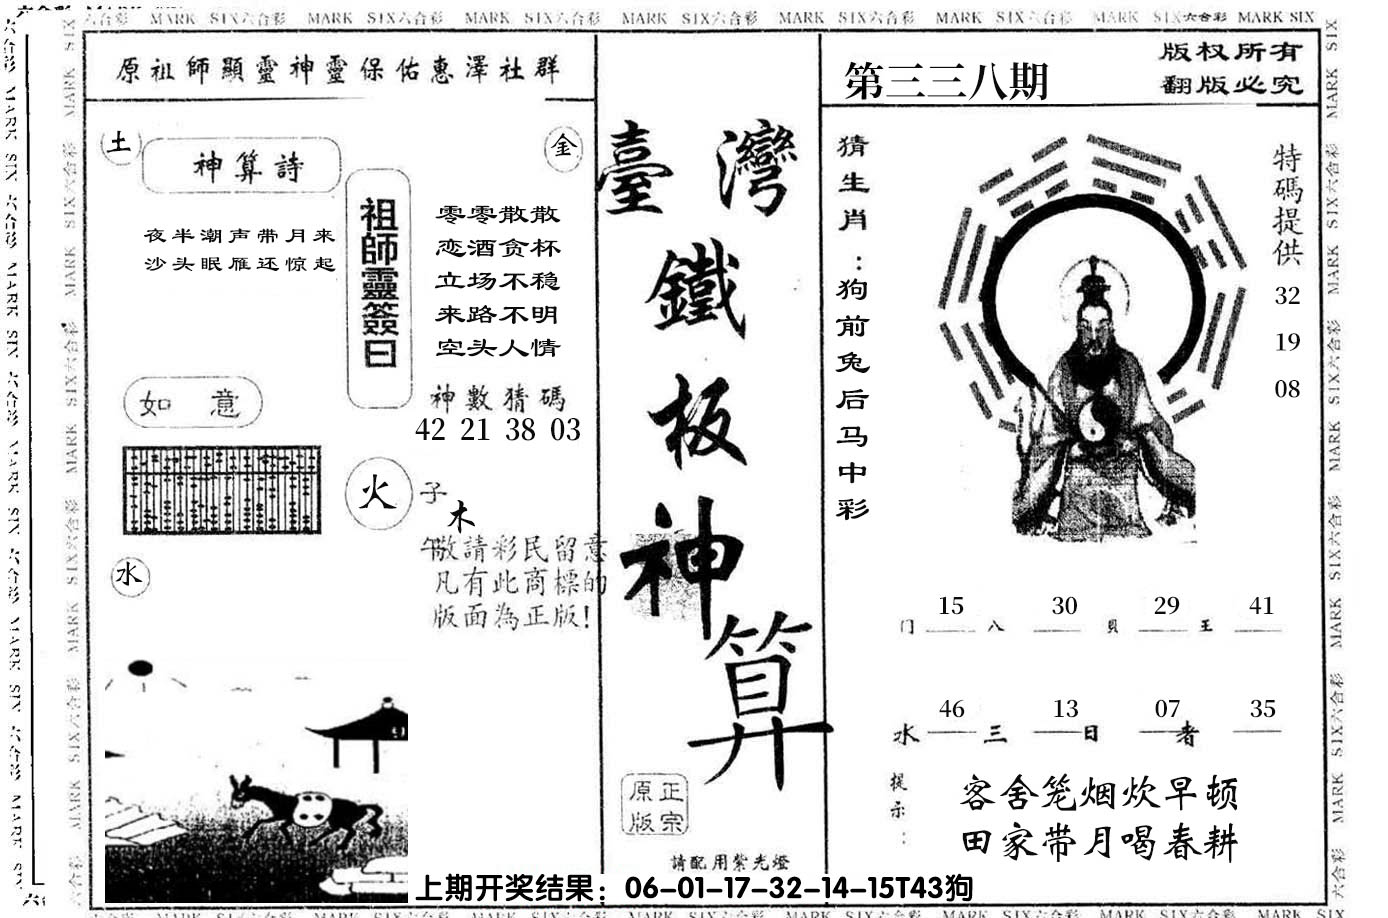 MARK SIX六合彩 MARK SIX六合彩 MARK SIX六合彩 MARK SIX六合彩 MARK SIX六合彩 MARK SIX六合彩 MARK SIX六合彩 MARK SIX
原祖師顯靈神靈保佑惠澤社群
土
神算詩
金
夜半潮声带月来
沙头眠雁还惊起
祖師靈簽曰
零零散散
恋酒贪杯
立场不稳
来路不明
空头人情
如意
神數猜碼
42 21 38 03
火
子
木
午
敬請彩民留意
凡有此商標的
版面為正版!
水
臺灣
鐵
板
神
算
原正
版宗
請配用紫光燈
第三三八期
版权所有
翻版必究
猜生肖:狗前兔后马中彩
特碼提供
32
19
08
15 30 29 41
门 八 貝 王
46 13 07 35
水 三 日 者
提示:
客舍笼烟炊早顿
田家带月喝春耕
上期开奖结果：06-01-17-32-14-15T43狗